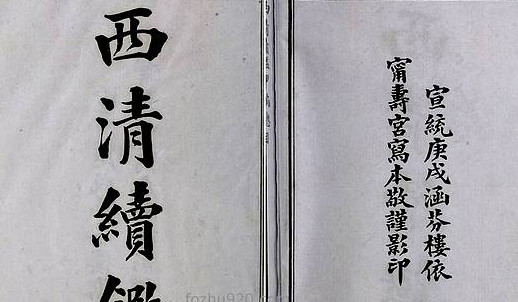 西清續鑑
宣統庚戌涵芬樓依
甯壽宮寫本敬謹影印